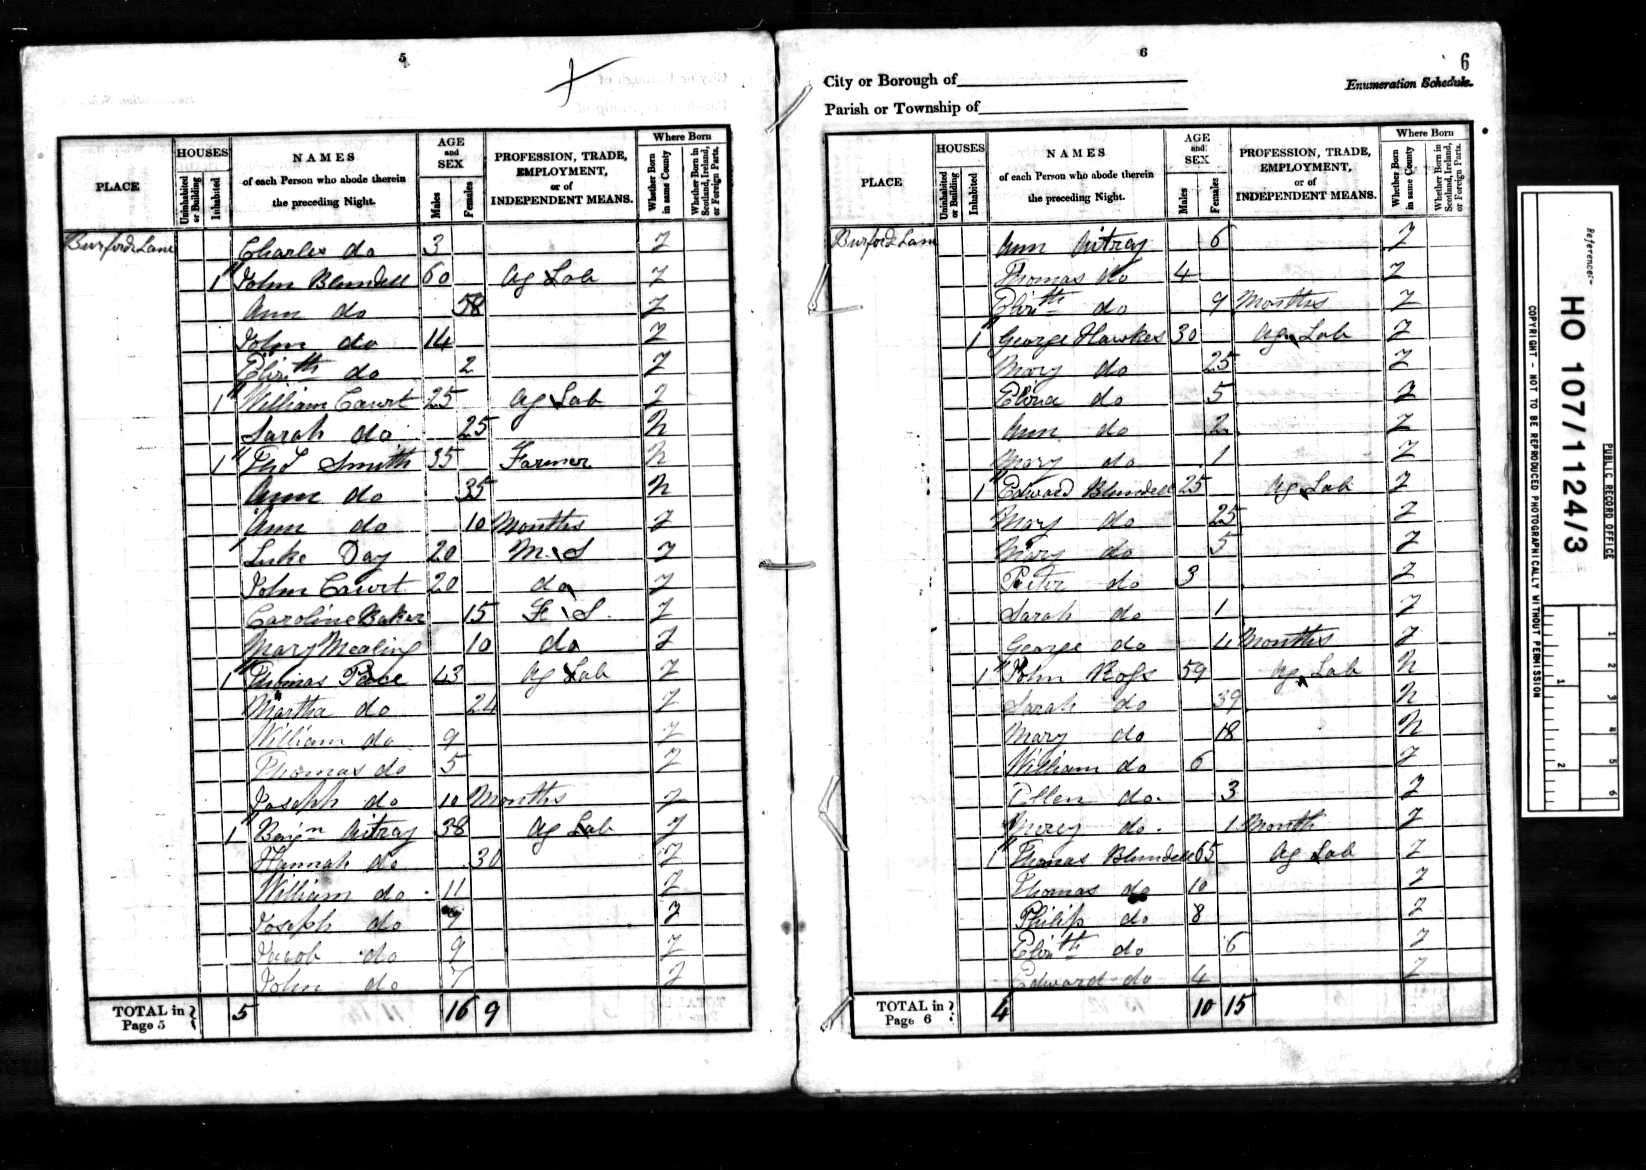 5
HOUSES
PLACE
Uninhabited or Building
Inhabited
NAMES
of each Person who abode therein
the preceding Night.
AGE and SEX
Males
Females
PROFESSION, TRADE,
EMPLOYMENT,
or of
INDEPENDENT MEANS.
Where Born
Whether Born in same County
Whether Born in Scotland, Ireland, or Foreign Parts.
Burford Lane Charles do 3 Y
1 John Blundell 60 Ag Lab Y
Ann do 58 Y
John do 14 Y
Elizth do 2 Y
1 William Court 25 Ag Lab Y
Sarah do 25 N
1 Smith 35 Farmer N
Ann do 35 N
Ann do 10 Months Y
Luke Day 20 M. S Y
John Court 20 do Y
Caroline Baker 15 F. S. Y
Mary Mealing 10 do Y
1 Thomas Pace 43 Ag Lab Y
Martha do 24 Y
William do 9 Y
Thomas do 5 Y
Joseph do 10 Months Y
1 Benjn 38 Ag Lab Y
Hannah do 30 Y
William do 11 Y
Joseph do 7 Y
Jacob do 9 Y
John do 7 Y
TOTAL in Page 5 } 5 16 9
6
6
City or Borough of
Enumeration Schedule.
Parish or Township of
HOUSES
PLACE
Uninhabited or Building
Inhabited
NAMES
of each Person who abode therein
the preceding Night.
AGE and SEX
Males
Females
PROFESSION, TRADE,
EMPLOYMENT,
or of
INDEPENDENT MEANS.
Where Born
Whether Born in same County
Whether Born in Scotland, Ireland, or Foreign Parts.
Burford Lane Ann 6 Y
Thomas do 4 Y
Elizth do 9 Months Y
1 George Hawkes 30 Ag Lab Y
Mary do 25 Y
Eliza do 5 Y
Ann do 2 Y
Mary do 1 Y
1 Edward Blundell 25 Ag Lab Y
Mary do 25 Y
Mary do 5 Y
Peter do 3 Y
Sarah do 1 Y
George do 4 Months Y
1 John Ross 59 Ag Lab N
Sarah do 39 N
Mary do 18 N
William do 6 Y
Ellen do 3 Y
Mercy do 1 Month Y
1 Thomas Blundell 65 Ag Lab Y
Thomas do 10 Y
Philip do 8 Y
Elizth do 6 Y
Edward do 4 Y
TOTAL in Page 6 } 4 10 15
Reference:-
HO 107/1124/3
PUBLIC RECORD OFFICE
COPYRIGHT - NOT TO BE REPRODUCED PHOTOGRAPHICALLY WITHOUT PERMISSION
1 2 3 4 5 6
1 2